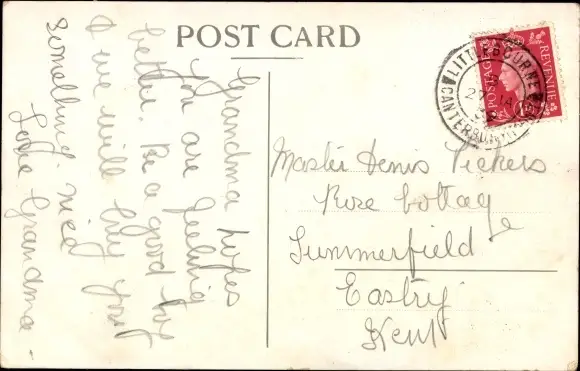 POST CARD
Grandma hopes
you are feeling
better. Be a good boy
& we will buy you
something nice
Love Grandma
POSTAGE
REVENUE
LITTLEBOURNE
CANTERBURY
Master Denis Vickers
Rose Cottage
Summerfield
Eastry
Kent